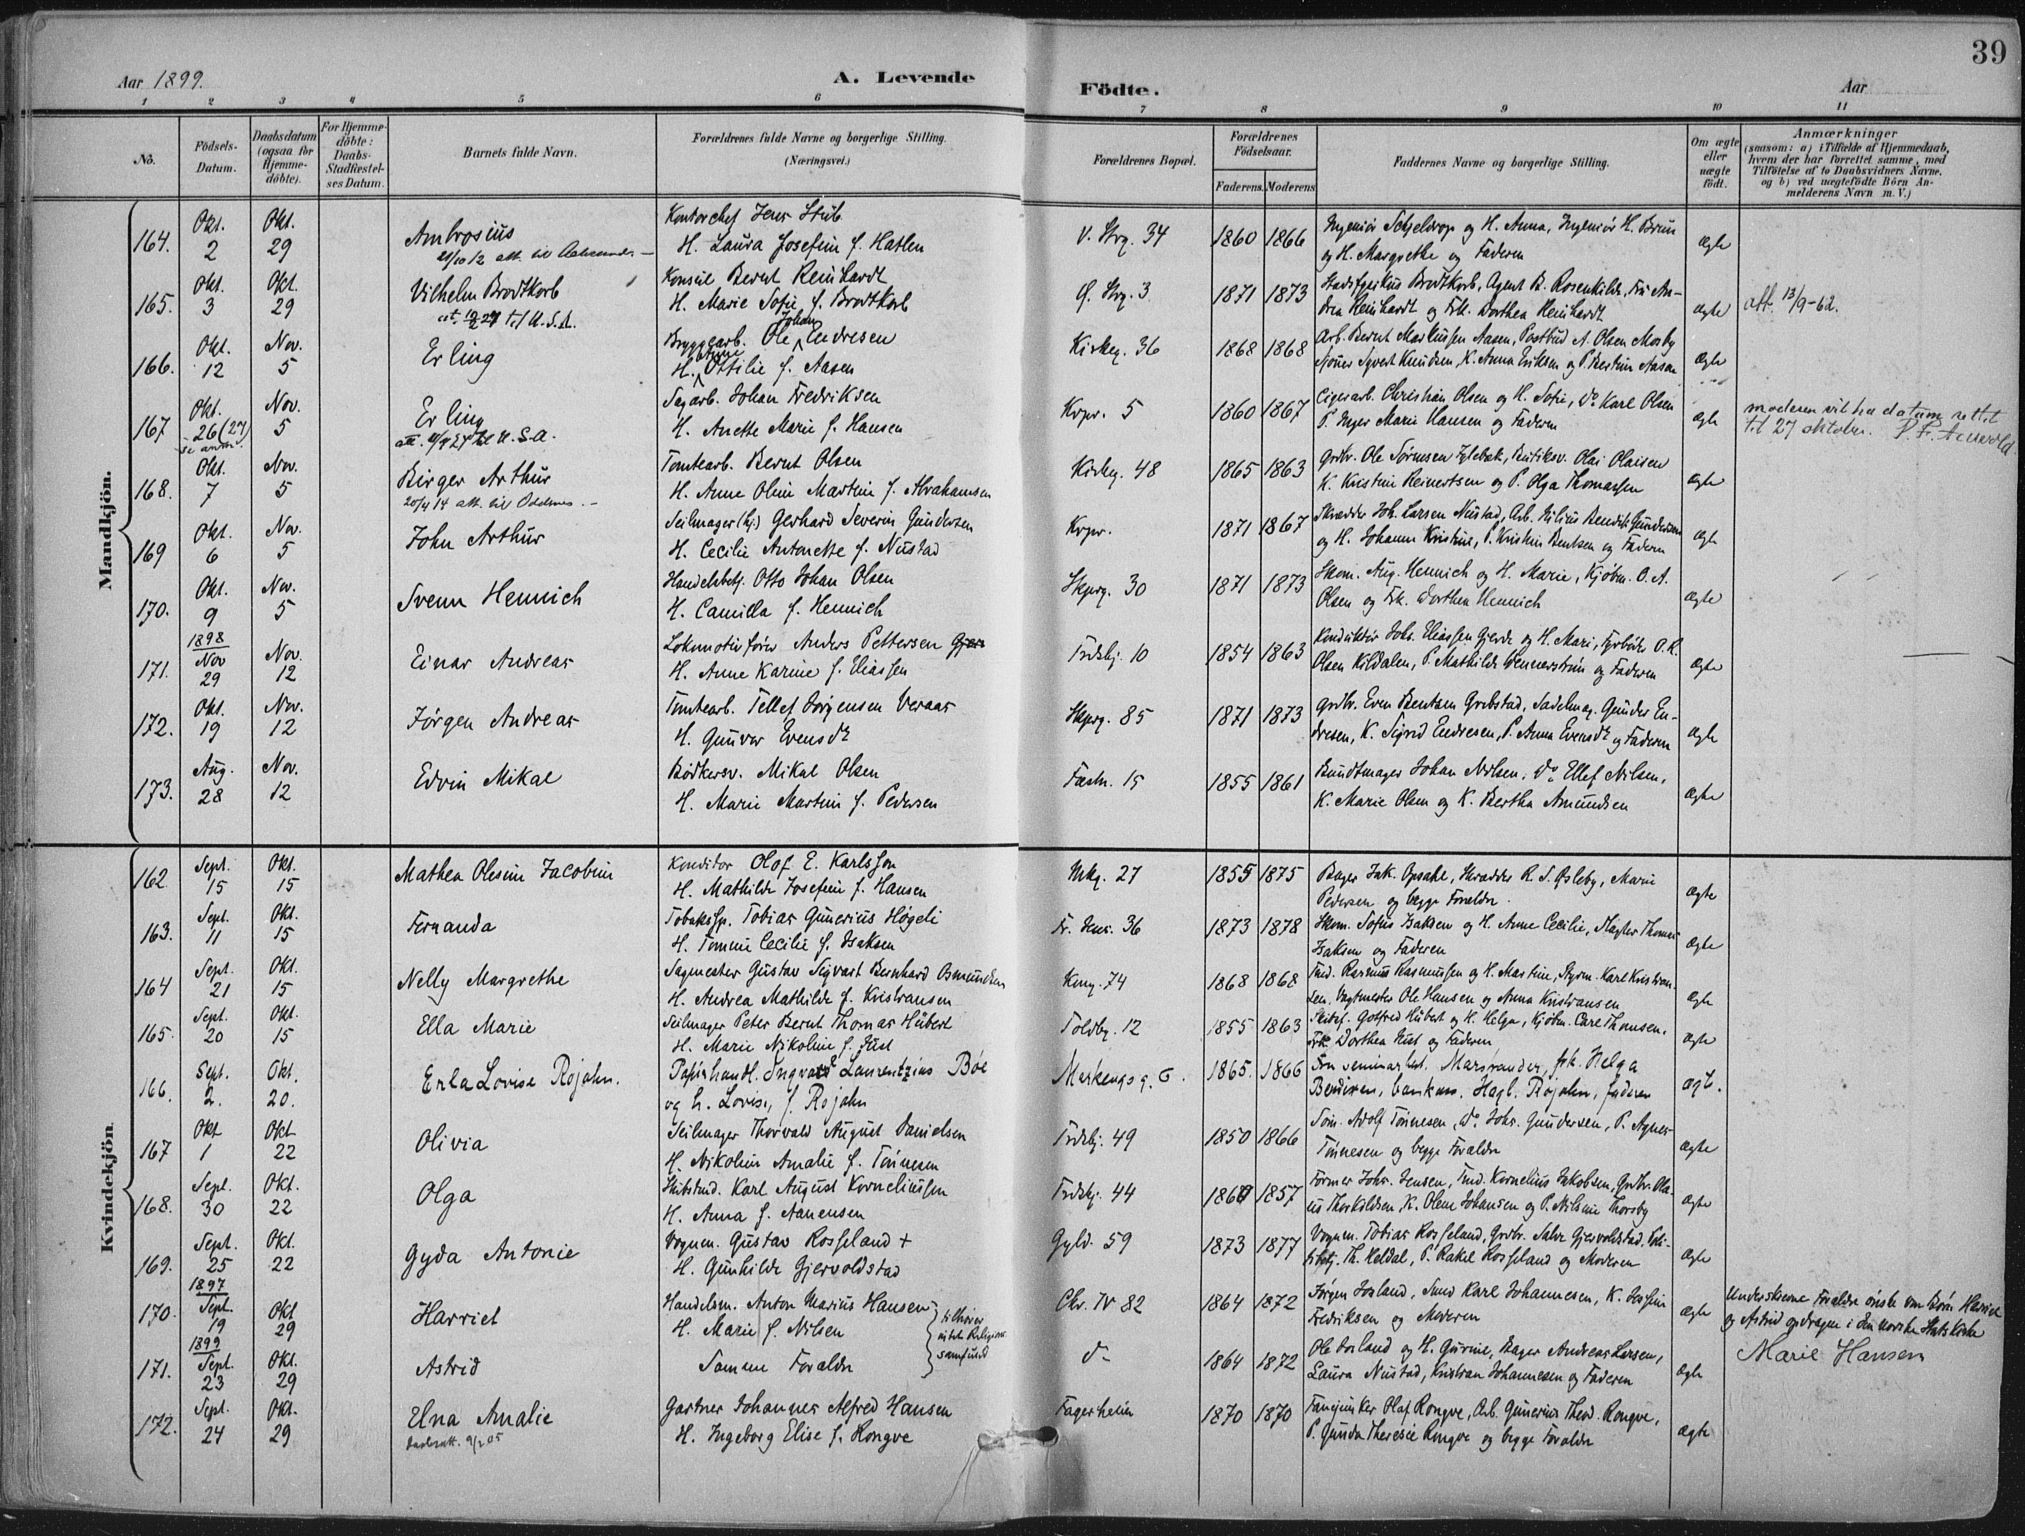 39
Aar 1899.
A. Levende
Födte.
Aar
1 2 3 4 5 6 7 8 9 10 11
No.
Födsels-Datum.
Daabsdatum (ogsaa for Hjemme-döbte).
For Hjemme-döbte: Daabs-Stadfestel-ses Datum.
Barnets fulde Navn.
Forældrenes fulde Navne og borgerlige Stilling. (Næringsvei.)
Forældrenes Bopæl.
Forældrenes Födselsaar.
Faderens. Moderens
Faddernes Navne og borgerlige Stilling.
Om ægte eller uægte födt.
Anmærkninger
(saasom: a) i Tilfælde af Hjemmedaab, hvem der har forrettet samme, med Tilföielse af to Daabsvidners Navne, og b) ved uægtefödte Börn An-melderens Navn m. V.)
Mandkjön.
164. Okt. 2 Okt. 29 Ambrosius
Kontorchef Jens Stub
H. Laura Josefine f. Hatlen
V. Strg. 34 1860 1866
Ingeniör Schjeldrop og H. Anna, Ingeniör H. Bruun
og H. Margrethe og Faderen
ægte
165. Okt. 3 Okt. 29 Vilhelm Brodtkorb
til U.S.A.
Konsul Bernt Reinhardt
H. Marie Sofie f. Brodtkorb
Ø. Strg. 3 1871 1873
Brodtkorb, Agent B. Rosenkilde, Fru An-
drea Reinhardt og Frk. Dorthea Reinhardt
ægte att. 13/9-62.
166. Okt. 12 Nov. 5 Erling
Bryggearb. Ole Johan Endresen
H. Anne Ottilie f. Aasen
Kirkeg. 36 1868 1868
Arb. Bernt Markussen Aasen, Postbud A. Olsen Mosby
Sjouer Syvert Knudsen, K. Anna Eriksen og P. Bertine Aasen
ægte
167 Okt. 26 (27) se anm. Nov. 5 Erling
til U.S.A.
Sagarb. Johan Fredriksen
H. Anette Marie f. Hansen
Kvpr. 5 1860 1867
Cigararb. Christian Olsen og H. Sofie, Do Karl Olsen
P. Inger Marie Hansen og Faderen
ægte
moderen vil ha datum rettet
til 27 oktober.
168. Okt. 7 Nov. 5 Birger Arthur
20/4 14 att. til Oddernes.
Tomtearb. Bernt Olsen
H. Anne Oline Martine f. Abrahamsen
Kirkeg. 48 1865 1863
Grdbr. Ole Sörensen Eglebæk, Butiksv. Olai Olaisen
K. Kristine Reinertsen og P. Olga Thomassen
ægte
169 Okt. 6 Nov. 5 John Arthur
Seilmager (hj.) Gerhard Severin Gundersen
H. Cecilie Antonette f. Nustad
Kvpr. 1871 1867
Skrædder Joh. Larsen Nustad, Arb. Nilius Bendik Gundersen
og H. Johanne Kristine, P. Kristine Bentsen og Faderen
ægte
170. Okt. 9 Nov. 5 Svenn Hennich
Handelsbetj. Otto Johan Olsen
H. Camilla f. Hennich
Skprg. 30 1871 1873
Skom. Aug. Hennich og H. Marie, Kjøbm. O. A.
Olsen og Frk. Dorthea Hennich
ægte
171. 1898 Nov 29 Nov. 12 Einar Andreas
Lokomotivfører Anders Pettersen
H. Anne Karine f. Eliassen
Trdskj. 10 1854 1863
Konduktör Johs. Eliassen Gjerde og H. Mari, Fyrböder O. K.
Olsen Kildalen, P. Mathilde Wennerström og Faderen
ægte
172. Okt. 19 Nov. 12 Jørgen Andreas
Tomtearb. Tellef Jörgensen Veraas
H. Gunvor Evensdt
Skprg. 85 1871 1873
Grdbr. Even Bentsen Grebstad, Sadelmag. Gunder En-
dresen, K. Sigrid Endresen, P. Anna Evensdt og Faderen
ægte
173. Aug. 28 Nov. 12 Edvin Mikal
Bødkersv. Mikal Olsen
H. Marie Martine f. Pedersen
Fæstn. 15 1855 1861
Bundtmager Johan Nilsen, Do Ellef Nilsen,
K. Marie Olsen og K. Bertha Amundsen
ægte
Kvindekjön.
162 Sept. 15 Okt. 15 Mathea Olesine Jacobine
Konditor Olof E. Karlsson
H. Mathilde Josefine f. Hansen
Mkg. 27 1855 1875
Bager Jak. Opsahl, Skrædder R. S. Øsleby, Marie
Pedersen og begge Forældre.
ægte
163. Sept. 11 Okt. 15 Fernanda
Tobakssp. Tobias Gunerius Høgeli
H. Tomine Cecilie f. Isaksen
Fr. Hens. 36 1873 1878
Skom. Sofus Isaksen og H. Anne Cecilie, Slagter Thomas
Isaksen og Faderen
ægte
164 Sept. 21 Okt. 15 Nelly Margrethe
Sagmester Gustav Sigvart Bernhard Osmundsen
H. Andrea Mathilde f. Kristiansen
Kong. 74 1868 1868
Tmd. Rasmus Rasmussen og H. Martine, Styrm. Karl Kristian-
sen, Vagtmester Ole Hansen og Anna Kristiansen
ægte
165. Sept. 20 Okt. 15 Ella Marie
Seilmager Peter Bernt Thomas Hubert
H. Marie Nikoline f. Just
Toldbg. 12 1855 1863
Skibsf. Gotfred Hubert og H. Helga, Kjøbm. Carl Thomsen,
Frk. Dorthea Just og Faderen
ægte
166. Sept. 2. Okt. 20. Erla Lovise Rojahn.
Papirhandl. Ingvald Laurentzius Bøe
og h. Lovise, f. Rojahn
Markensg. 6. 1865. 1866
Fru seminarbest. Marstrander, frk. Helga
Bendixen, bankass. Hagb. Rojahn, faderen
ægt.
167 Okt 1 Okt 22 Olivia
Seilmager Thorvald August Danielsen
H. Nikoline Amalie f. Tönnesen
Trdskj. 49 1850 1866
Tom. Adolf Tönnesen, Do Johs. Gundersen, P. Agnes
Tönnesen og begge Forældre
ægte
168. Sept. 30 Okt. 22 Olga
Skibstmd. Karl August Korneliussen
H. Anna f. Aanensen
Trdskj. 44 1857
Former Johs. Jensen, Tmd. Kornelius Jakobsen, Grdbr. Ola-
us Thorkildsen, K. Olene Johansen og P. Nilsine Thorsby
ægte
169. Sept. 25 Okt. 22 Gyda Antonie
Vognm. Gustav Rosseland +
H. Gunhilde Gjervoldstad
Gyld. 59 1873 1877
Vognm. Tobias Rosseland, Grdbr. Salve Gjervoldstad, Poli-
tibetj. Th. Heldal, P. Rakel Rosseland og Moderen
ægte
170. 1897 Sept. 19 Okt 29 Harriet
Handelsm. Anton Marius Hansen
H. Marie f. Nilsen
tilhører intet Religions-samfund
Chr. IV 82 1864 1872
Jørgen Josland, Smed Karl Johannesen, K. Josefine
Fredriksen og Moderen
ægte
Underskrevne Forældre ønske vore Børn Harriet
og Astrid opdragne i den norske Statskirke
Marie Hansen
171. 1899 Sept. 23 Okt. 29 Astrid
Samme Forældre
Do 1864 1872
Ole Josland og H. Gurine, Bager Andreas Larsen,
Laura Nustad, Kristian Johannesen og Faderen
ægte
172. Sept. 24 Okt. 29 Elna Amalie
Daabsatt. 9/2 05
Gartner Johannes Alfred Hansen
H. Ingeborg Elise f. Rongve
Fagerheim 1870 1870
Fanejunker Olaf Rongve, Arb. Gunerius Theod. Rongve,
P. Gunda Theresie Rongve og begge Forældre
ægte